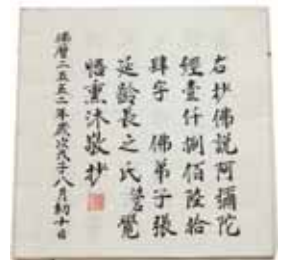 右抄佛說阿彌陀
經壹仟捌佰陸拾
肆字 佛弟子張
延齡長之氏營覺
悟熏沐敬抄
佛曆二五五二年歲次戊子八月初十日